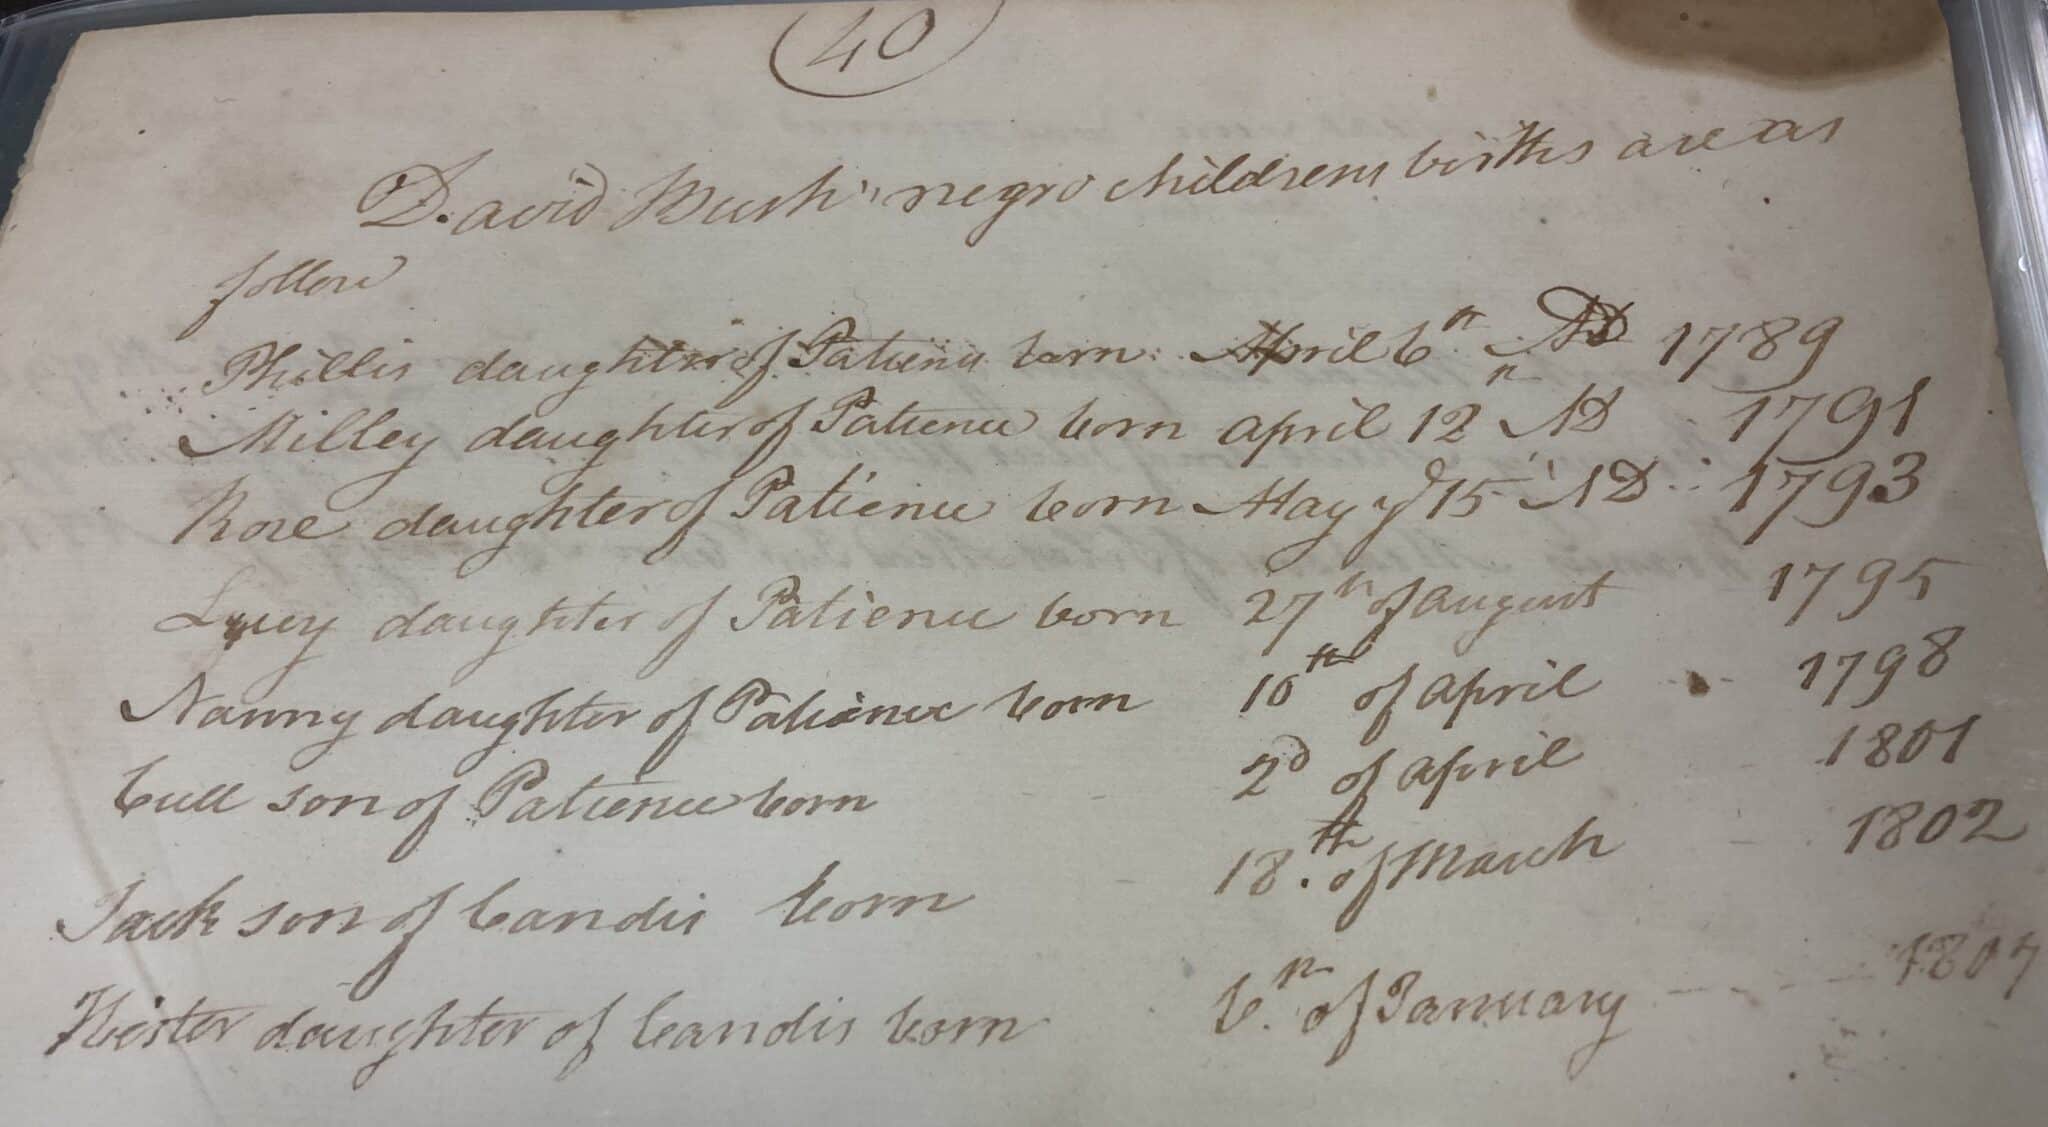 40
David Bush's negro childrens births are as
follow
Phillis daughter of Patience born April 6th AD 1789
Milley daughter of Patience born april 12th AD 1791
Rose daughter of Patience born May ye 15 AD 1793
Lucy daughter of Patience born 27th of august 1795
Nanny daughter of Patience born 10th of april 1798
Cull son of Patience born 2d of april 1801
Jack son of Candis born 18th of March 1802
Hester daughter of Candis born 6th of January 1807